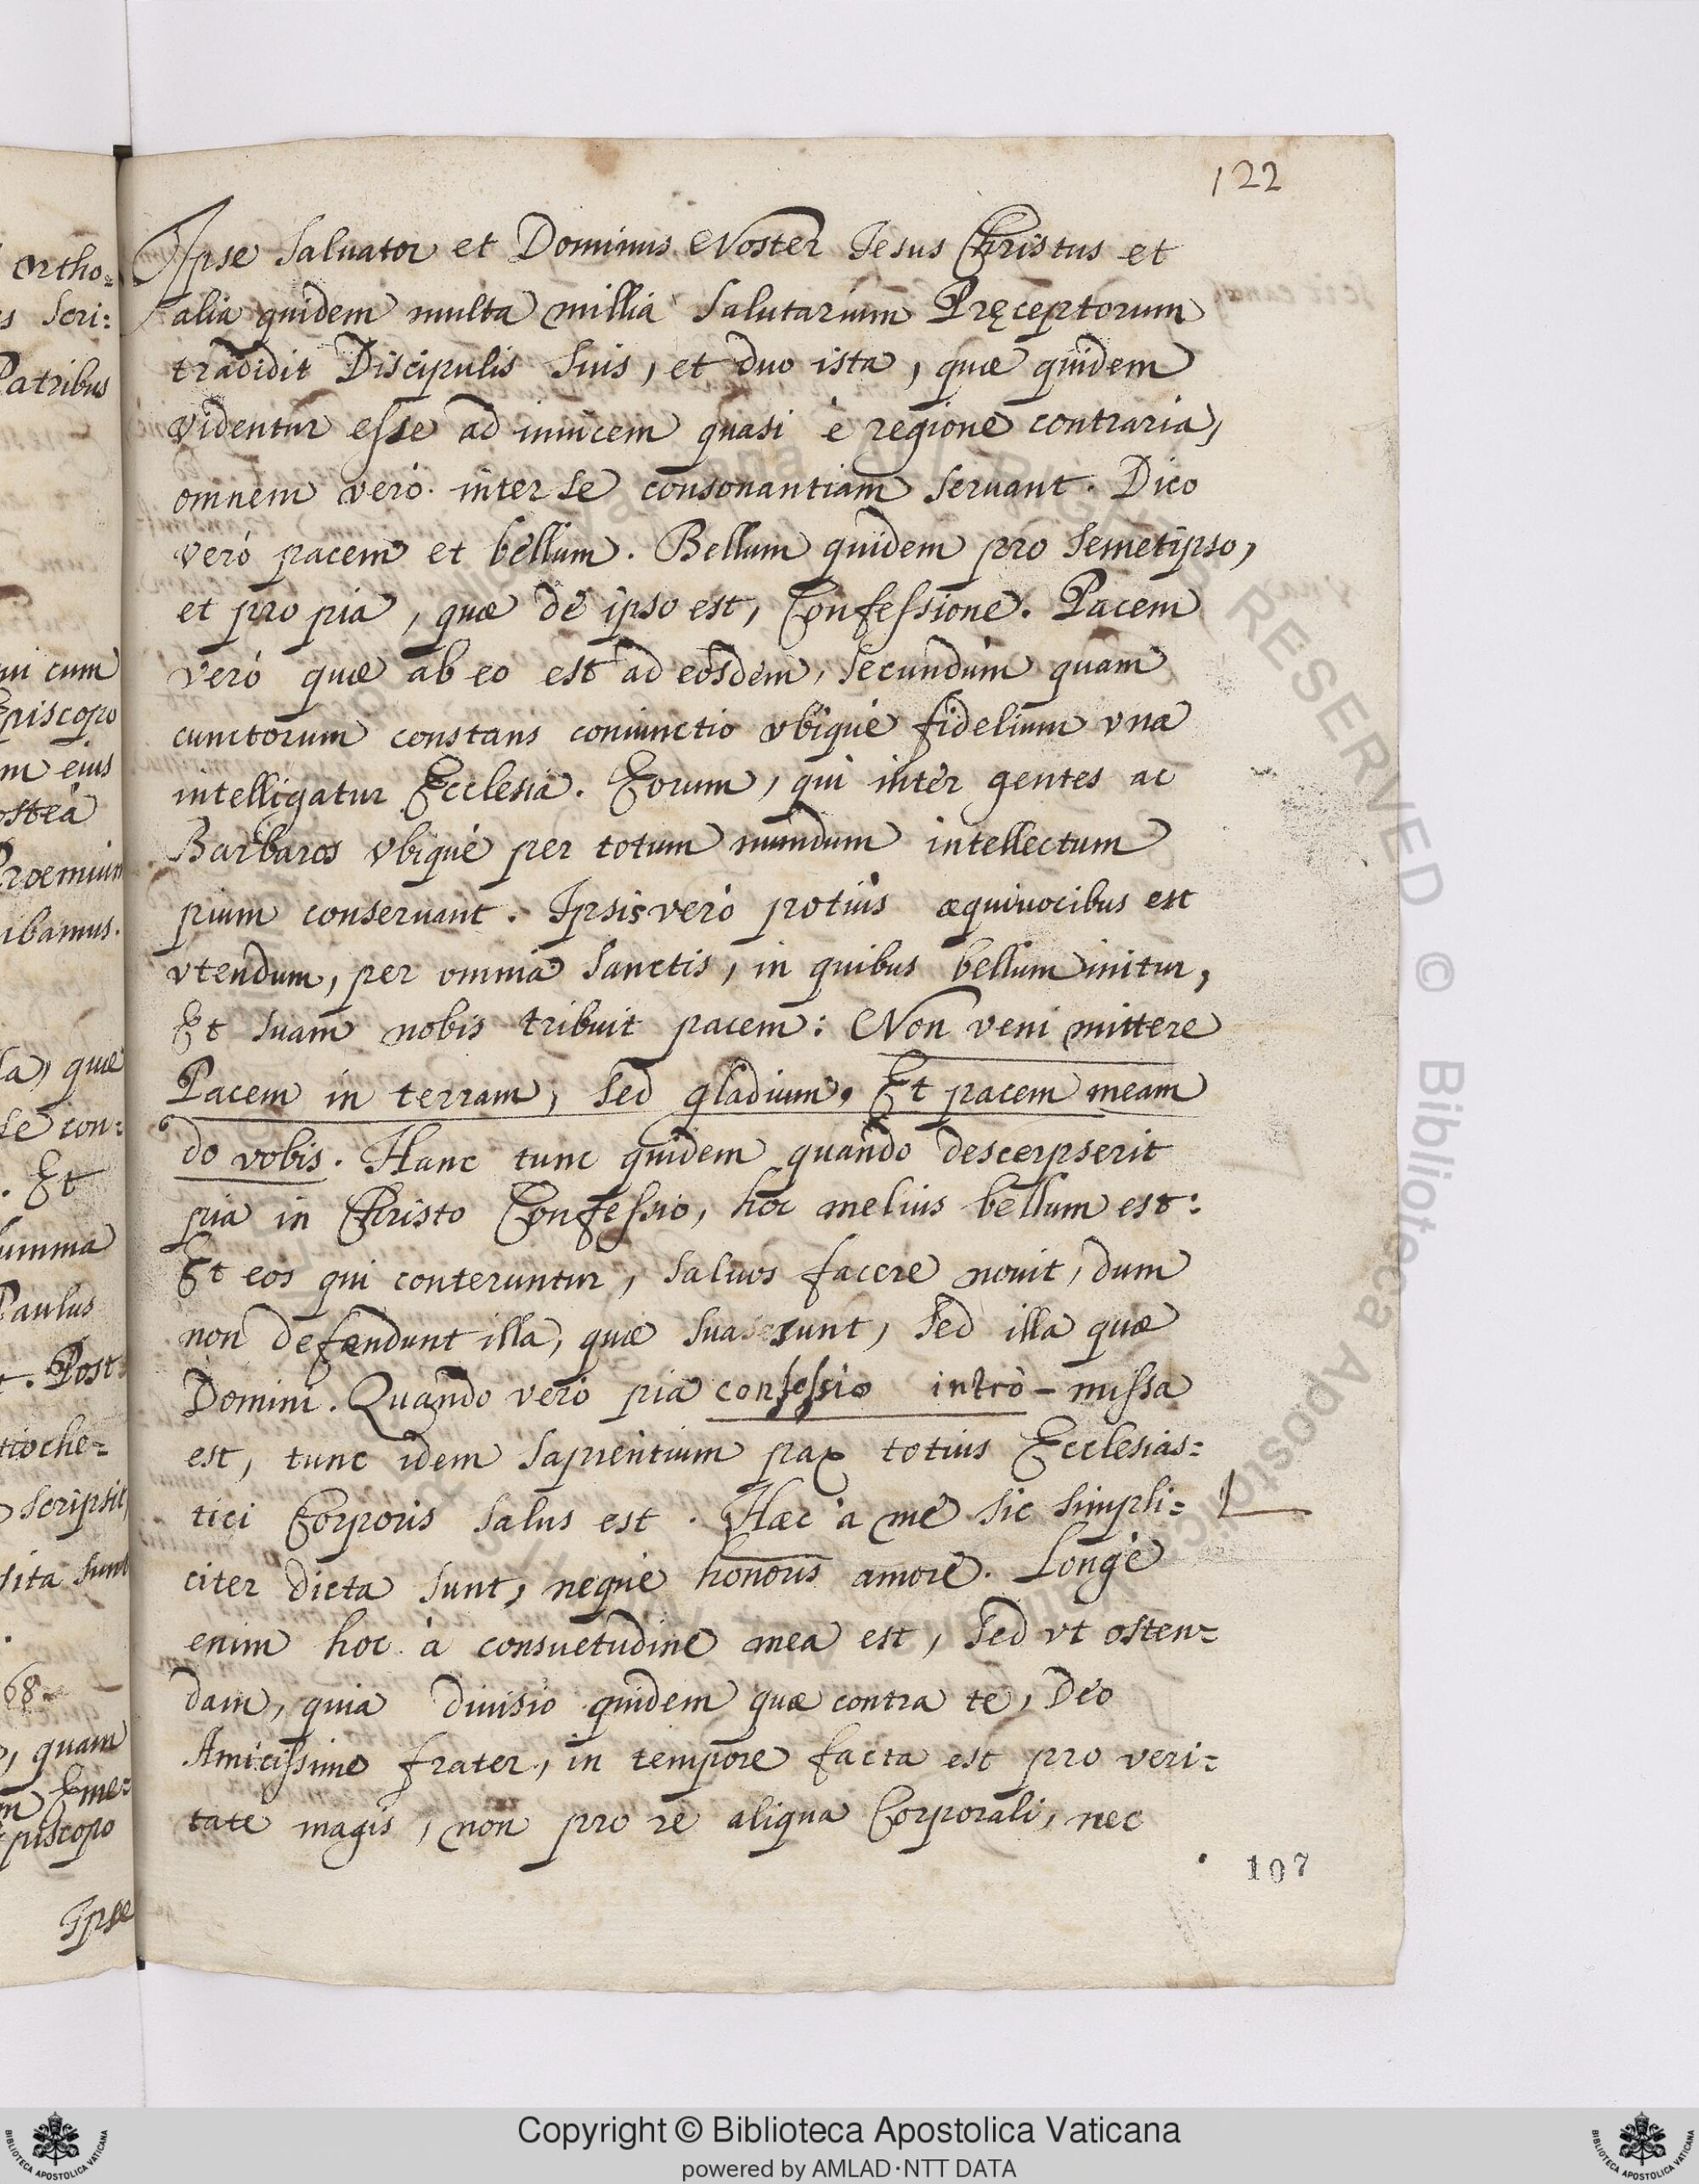 122
Ipse Saluator et Dominus Noster Iesus Christus et
alia quidem multa millia Salutarium Pręceptorum
tradidit Discipulis Suis, et duo ista, quæ quidem
videntur esse ad inuicem quasi è regione contraria,
omnem verò inter se consonantiam Seruant. Dico
verò pacem et bellum. Bellum quidem pro Semetipso,
et pro pia, quæ de ipso est, Confessione. Pacem
verò quæ ab eo est ad eosdem, Secundùm quam
cunctorum constans coniunctio vbique fidelium vna
intelligatur Ecclesia. Eorum, qui inter gentes ac
Barbaros vbiquè per totum mundum intellectum
pium conseruant. Ipsis verò potiùs æquiuocibus est
vtendum, per omnia Sanctis, in quibus bellum initur,
Et Suam nobis tribuit pacem: Non veni mittere
Pacem in terram, Sed gladium, Et pacem meam
do vobis. Hanc tunc quidem quando descerpserit
pia in Christo Confessio, hoc melius bellum est:
Et eos qui conteruntur, Saluos facere nouit, dum
non defendunt illa, quæ Sua sunt, Sed illa quæ
Domini. Quando verò pia confessio intrò-missa
est, tunc idem Sapientium pax totius Ecclesias=
tici Corporis Salus est. Hæc à me Sic Simpli=
citer dicta Sunt, neque honoris amore. Longè
enim hoc à consuetudine mea est, Sed vt osten=
dam, quia diuisio quidem quæ contra te, Deo
Amicissime frater, in tempore facta est pro veri=
tate magis, non pro re aliqua Corporali, nec
107
ortho=
Scri:
Patribus
cum
Episcopo
eius
Proemium
. Et
Paulus
. Post
tioche=
Scripsit,
Sita Sunt
68.
, quam
Eme=
Episcopo
Ipse
RESERVED © Biblioteca Apostolica
Copyright © Biblioteca Apostolica Vaticana
powered by AMLAD·NTT DATA
BIBLIOTECA APOSTOLICA VATICANA
BIBLIOTECA APOSTOLICA VATICANA